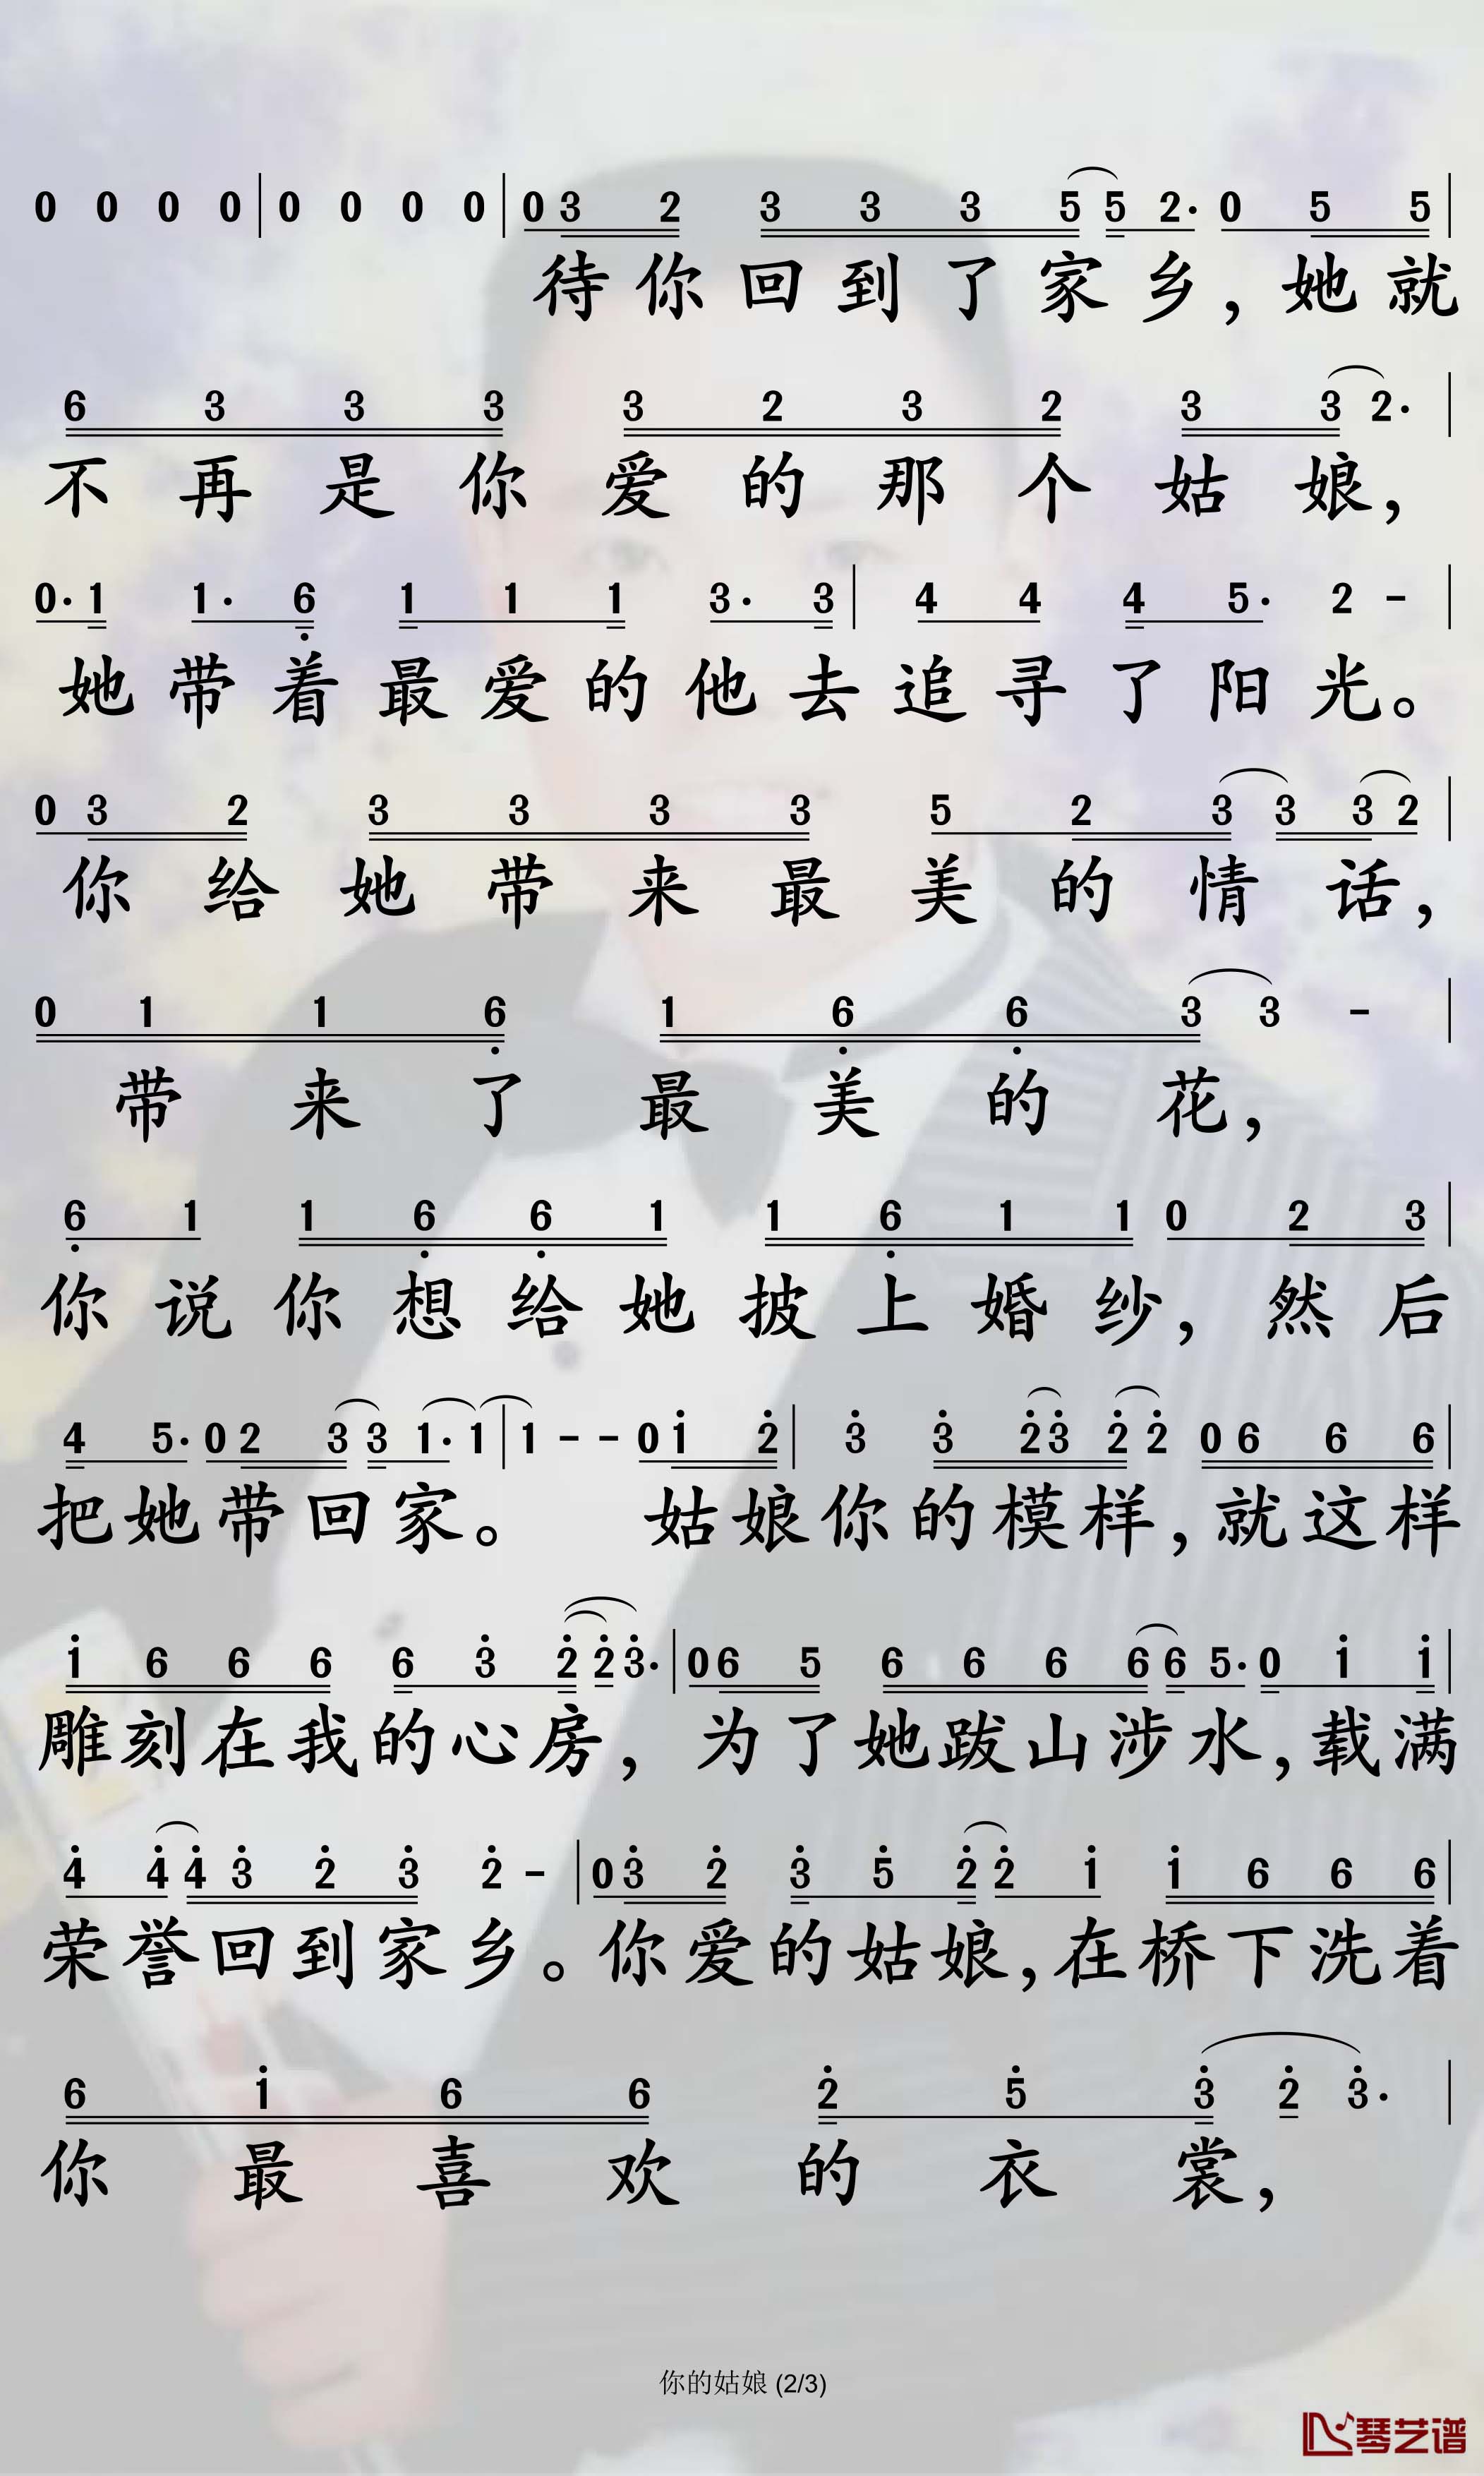 0 0 0 0 | 0 0 0 0 | 0 3 2 3 3 3 5 5 2· 0 5 5 |
待你回到了家乡，她就
6 3 3 3 3 2 3 2 3 3 2· |
不再是你爱的那个姑娘，
0· 1 1· 6̣ 1 1 1 3· 3 | 4 4 4 5· 2 - |
她带着最爱的他去追寻了阳光。
0 3 2 3 3 3 3 5 2 3 3 3 2 |
你给她带来最美的情话，
0 1 1 6̣ 1 6̣ 6̣ 3 3 - |
带来了最美的花，
6̣ 1 1 6̣ 6̣ 1 1 6̣ 1 1 0 2 3 |
你说你想给她披上婚纱，然后
4 5· 0 2 3 3 1· 1 | 1 - - 0 1̇ 2̇ | 3̇ 3̇ 2̇ 3̇ 2̇ 2̇ 0 6 6 6 |
把她带回家。 姑娘你的模样，就这样
1̇ 6 6 6 6 3̇ 2̇ 2̇ 3̇· | 0 6 5 6 6 6 6 6 5· 0 1̇ 1̇ |
雕刻在我的心房，为了她跋山涉水，载满
4̇ 4̇ 4̇ 3̇ 2̇ 3̇ 2̇ - | 0 3̇ 2̇ 3̇ 5̇ 2̇ 2̇ 1̇ 1̇ 6 6 6 |
荣誉回到家乡。你爱的姑娘，在桥下洗着
6 1̇ 6 6 2̇ 5̇ 3̇ 2̇ 3̇· |
你最喜欢的衣裳，
你的姑娘 (2/3)
琴艺谱